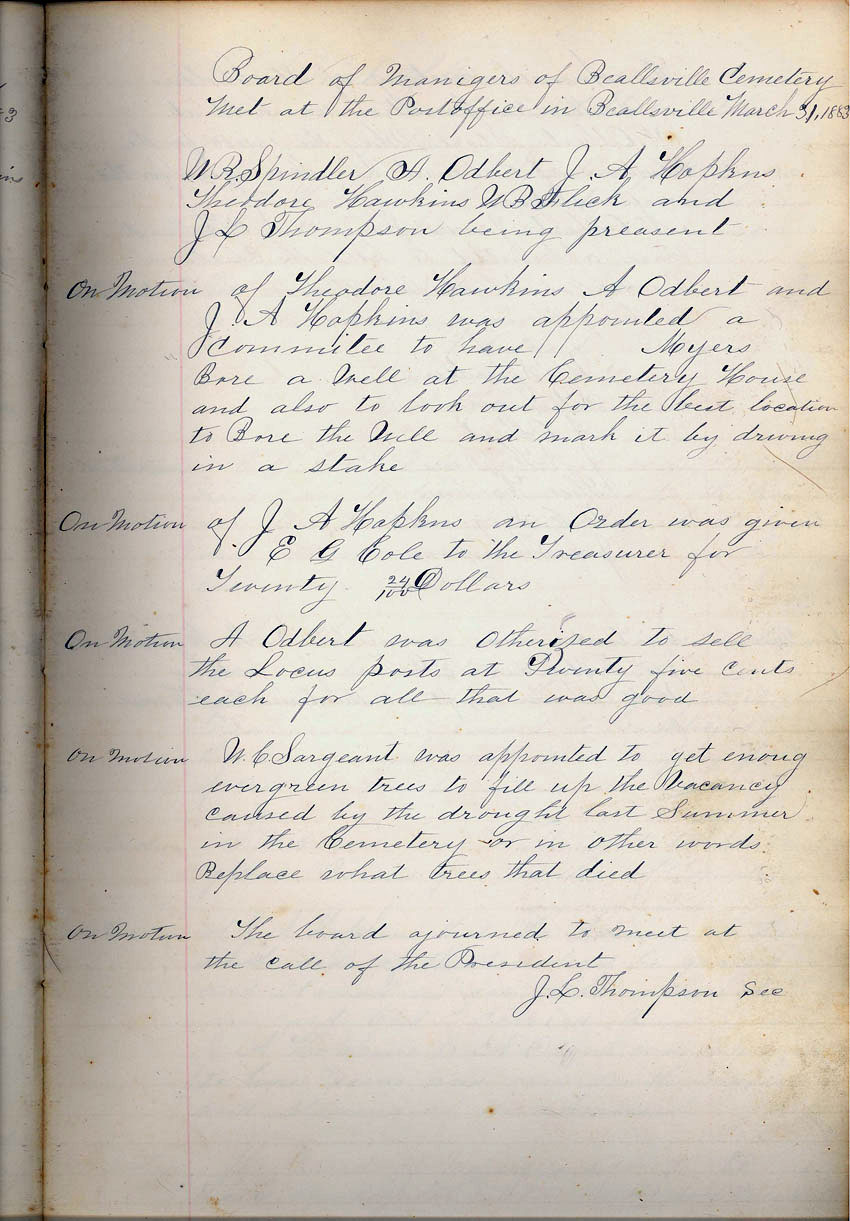 Board of Manigers of Beallsville Cemetery
Met at the Postoffice in Beallsville March 31, 1883
W R Spindler A. Odbert J. A. Hopkns
Theodore Hawkins W B Flick and
J L Thompson being preasent
On Motion of Theodore Hawkins A Odbert and
J. A Hopkins was appointed a
commitee to have Myers
Bore a Well at the Cemetery House
and also to look out for the best location
to Bore the Well and mark it by driving
in a stake
On Motion of J A Hopkns an Order was given
E G Cole to the Treasurer for
Twenty 24/100 Dollars
On Motion A Odbert was Otherized to sell
the Locus posts at Twenty five cents
each for all that was good
On Motion W. C. Sargeant was appointed to get enoug
evergreen trees to fill up the vacancy
caused by the drought last Summer
in the Cemetery or in other words
Replace what trees that died
On Motion The board ajourned to meet at
the call of the President
J. L. Thompson Sec